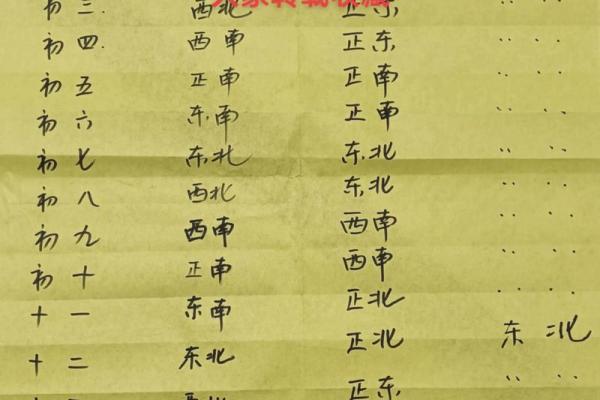 大家转载收藏
初三. 西北 正东 〃 〃
初四. 西南 正东 〃 〃
初五 正南 正南 〃 〃
初六 东南 正南 〃 〃
初七 东北 东北 〃 〃
初八 西北 东北 〃 〃
初九 西南 西南 〃 〃
初十 正南 西南 〃 〃
十一 东南 正北 〃 〃
十二 东北 正北 东北
正东 〃 〃